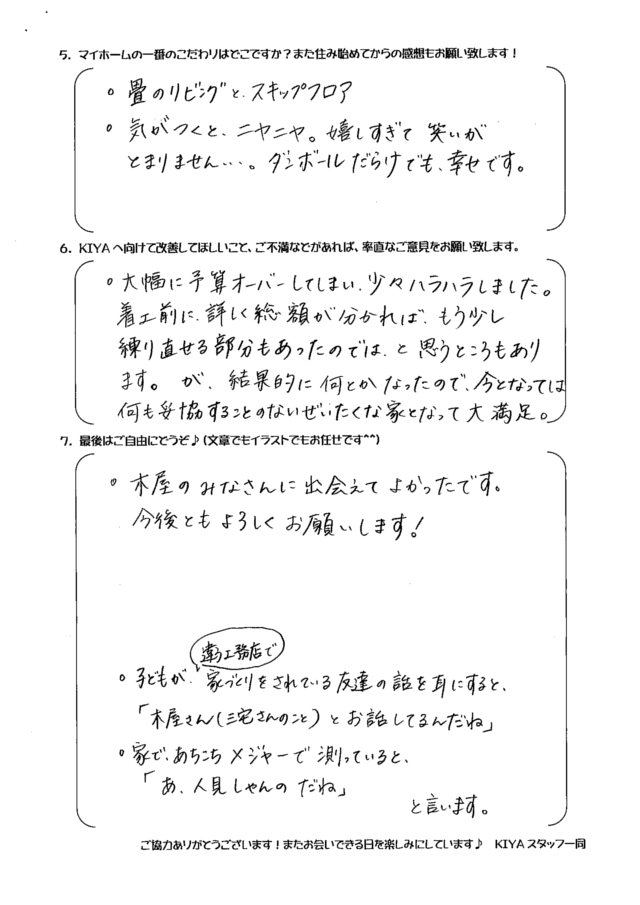 5. マイホームの一番のこだわりはどこですか？また住み始めてからの感想もお願い致します！
○ 畳のリビングと、スキップフロア
○ 気がつくと、ニヤニヤ。嬉しすぎて 笑いが
とまりません…。ダンボールだらけでも、幸せです。
6. KIYAへ向けて改善してほしいこと、ご不満などがあれば、率直なご意見をお願い致します。
○ 大幅に予算オーバーしてしまい、少々ハラハラしました。
着工前に、詳しく総額が分かれば、もう少し
練り直せる部分もあったのでは、と思うところもあり
ます。が、結果的に何とかなったので、今となっては
何も妥協することのないぜいたくな家となって大満足。
7. 最後はご自由にどうぞ♪(文章でもイラストでもお任せです^^)
○ 木屋のみなさんに出会えてよかったです。
今後ともよろしくお願いします！
違う工務店で
○ 子どもが、家づくりをされている友達の話を耳にすると、
「木屋さん(三宅さんのこと)とお話してるんだね」
○ 家で、あちこちメジャーで測っていると、
「あ、人見しゃんのだね」
と言います。
ご協力ありがとうございます！またお会いできる日を楽しみにしています♪ KIYAスタッフ一同